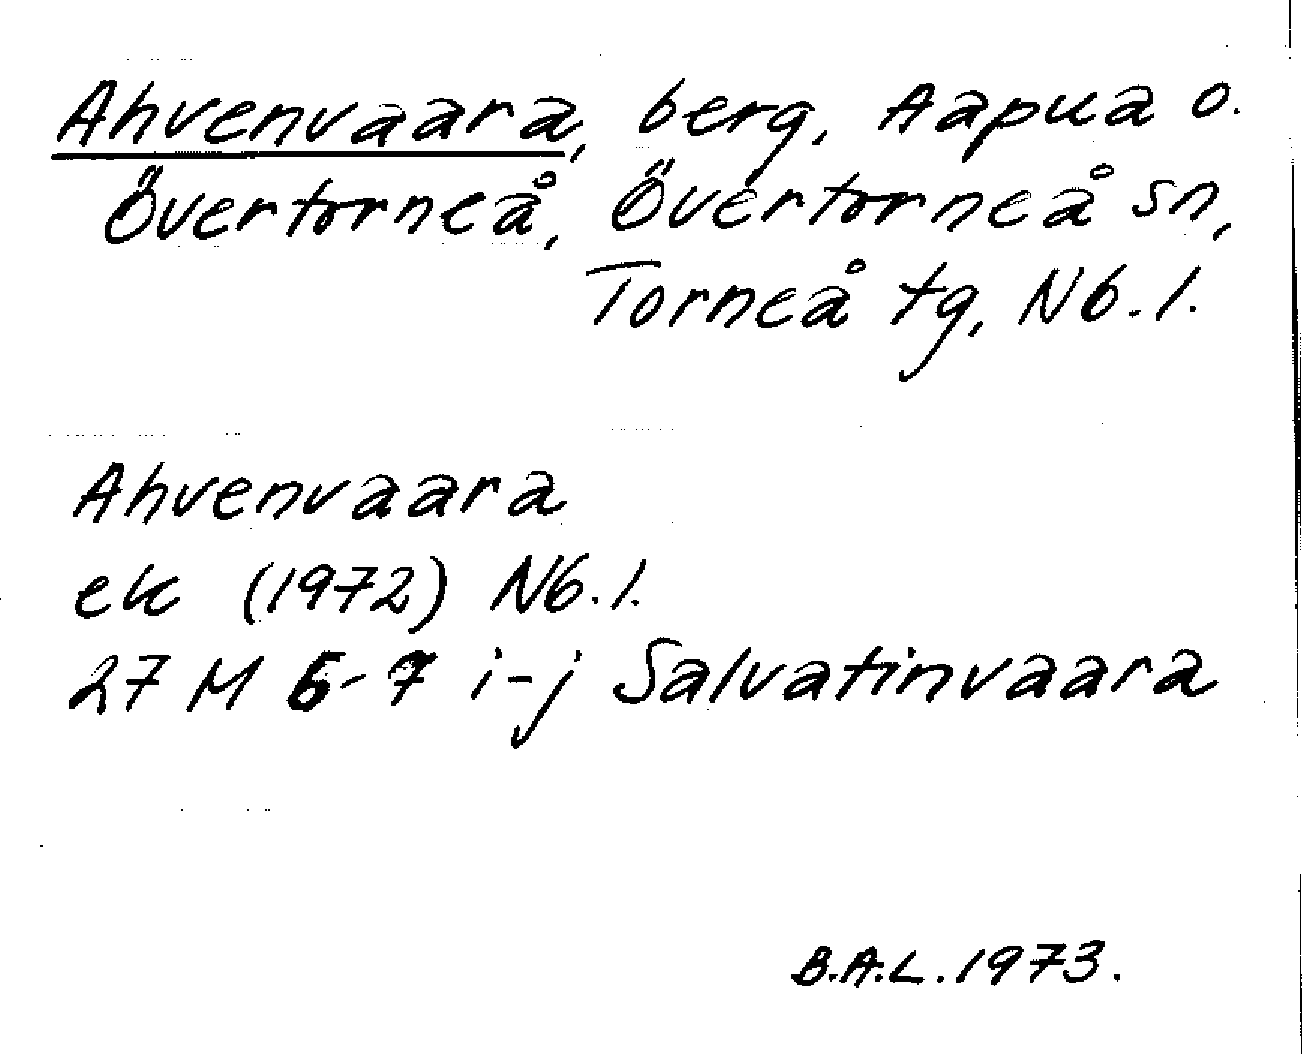 Ahvenvaara, berg, Aapua o.
Övertorneå, Övertorneå sn,
Torneå tg, Nb. l.
Ahvenvaara
ek (1972) Nb. l.
27 M 6-7 i-j Salvatinvaara
B.A.L. 1973.